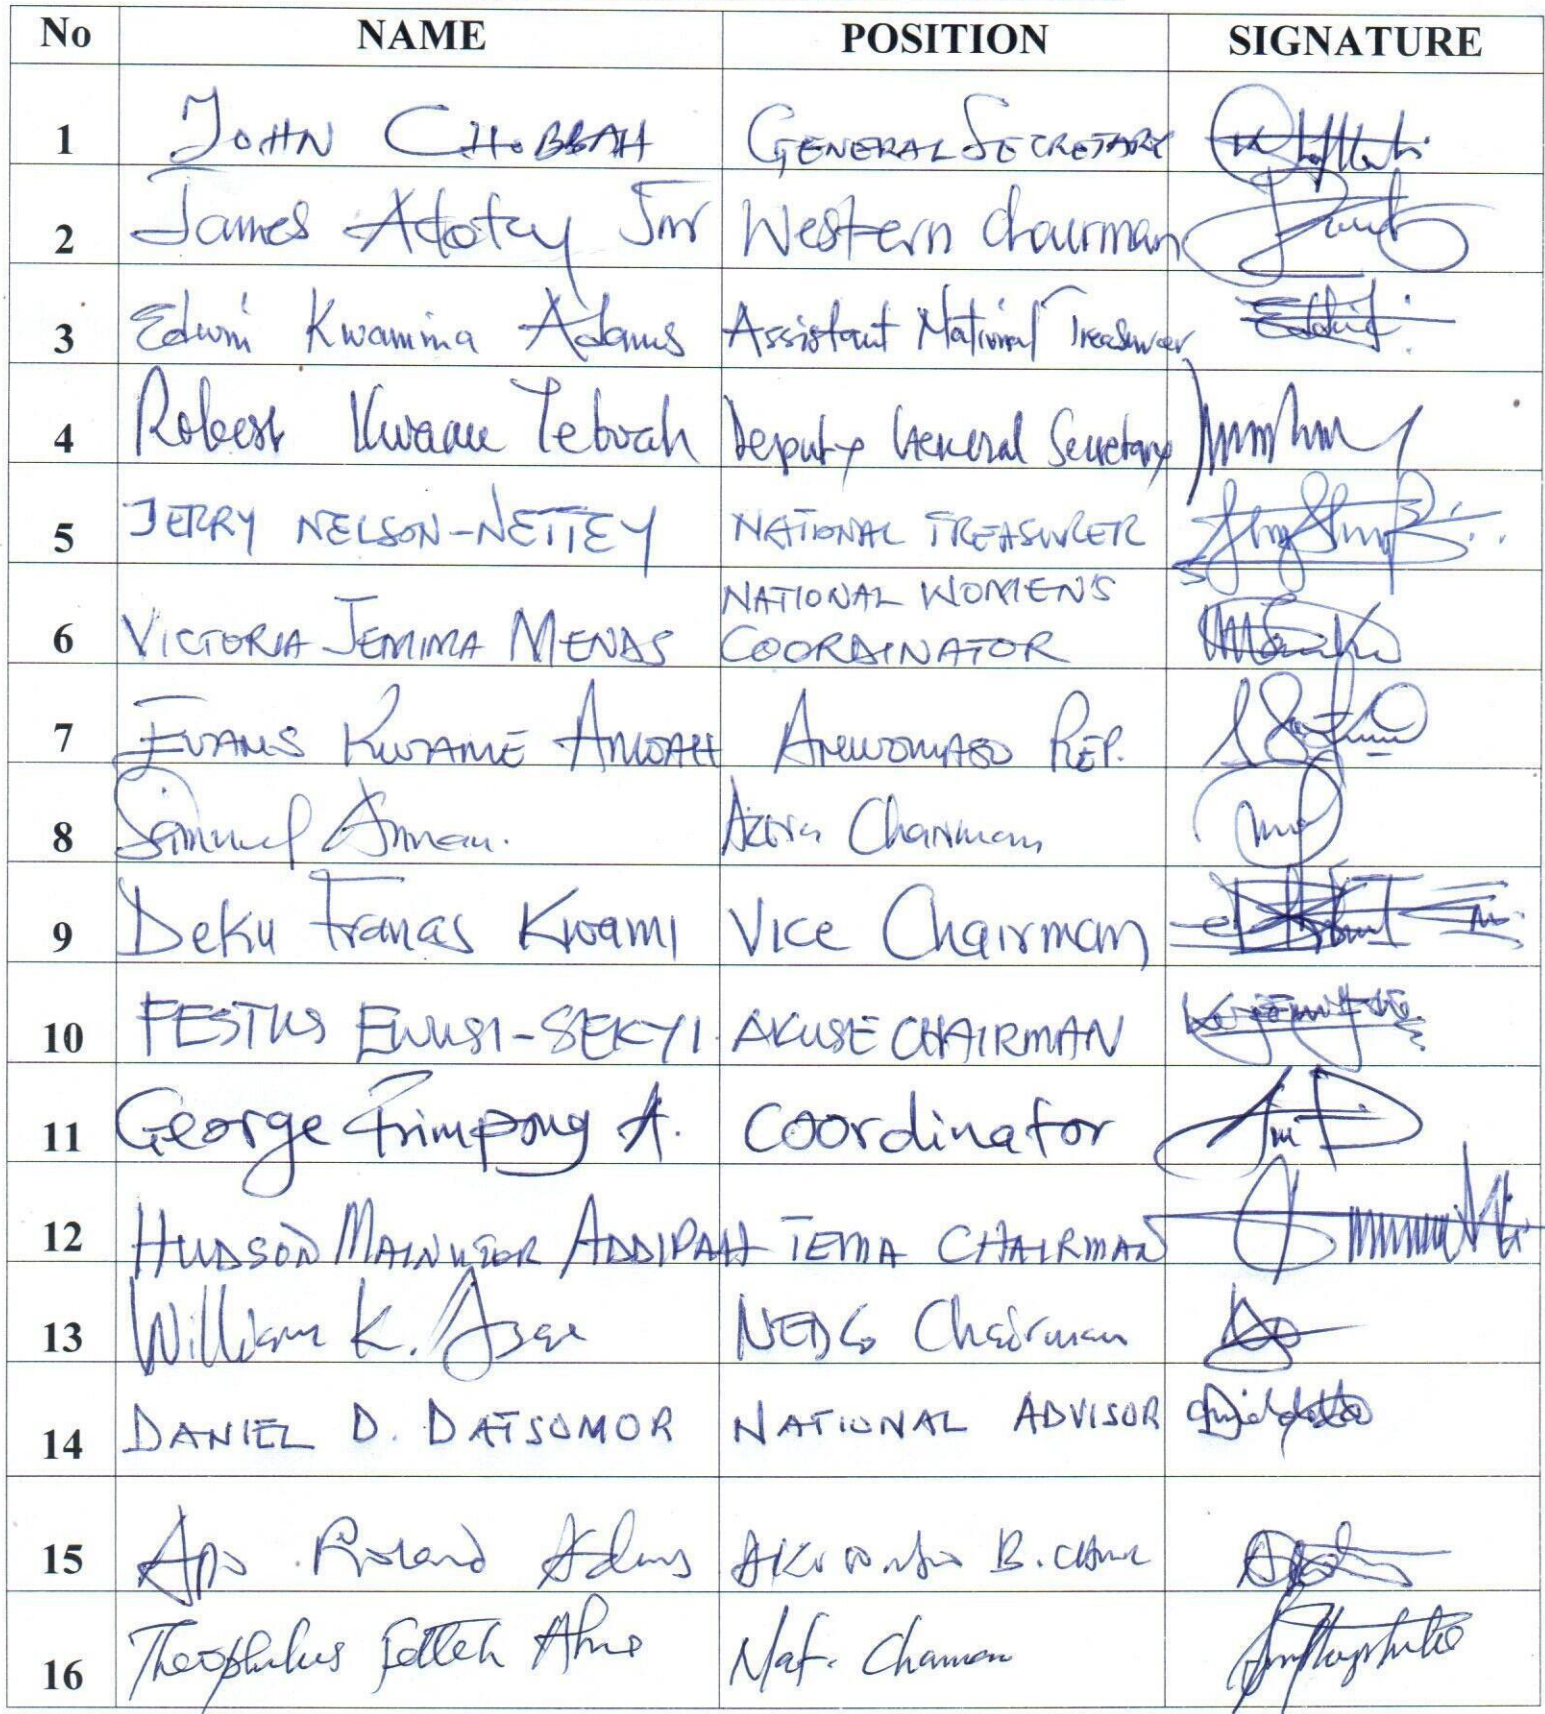 No NAME POSITION SIGNATURE
1 JOHN GENERAL SECRETARY
2 James Adotey Jnr Western Chairman
3 Edwin Kwamina Adams Assistant National Treasurer
4 Robert Kwame Tebuah Deputy General Secretary
5 JERRY NELSON-NETTEY NATIONAL TREASURER
6 VICTORIA JEMIMA MENAS NATIONAL WOMEN'S
COORDINATOR
7 EVANS KWAME AMOAH ANWOMASO REP.
8 Samuel Annan. Chairman
9 Deku Francis Kwami Vice Chairman
10 FESTUS EWUSI-SEKYI AKUSE CHAIRMAN
11 George Frimpong A. Coordinator
12 HUDSON ADDIPAH TEMA CHAIRMAN
13 William K. NEDCo Chairman
14 DANIEL D. DATSOMOR NATIONAL ADVISOR
15 Roland Adams B.
16 Theophilus Nat. Chairman